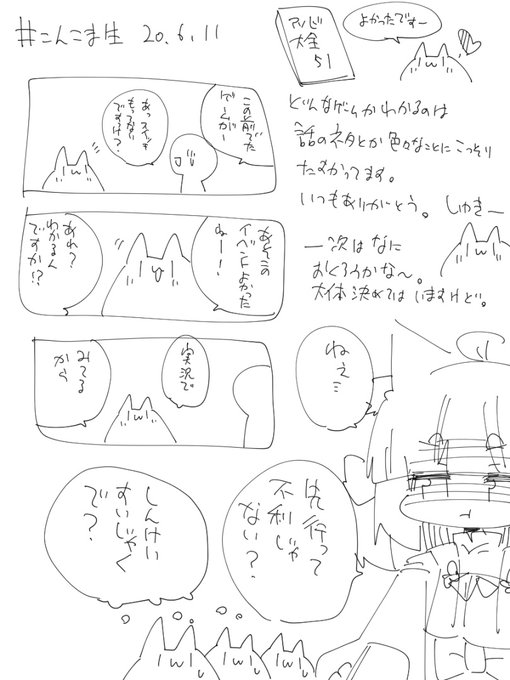 #こんこま生 20.6.11
アソビ
大全
51
よかったですー
どんなゲームかわかるのは
話のネタとか色々なことにこっそり
たすかってます。
いつもありがとう。しゅきー
一次はなに
おくろうかな〜。
大体決めてはいますけど。
この前でた
ゲームがー
あっスイッチ
もってない
ですよね?
あそこの
イベントよかった
ねー!
あれ?
わかるん
ですか!?
実況で
みてる
から
ねぇミミ
先行って
不利じゃ
ない?
しんけい
すいじゃく
で?